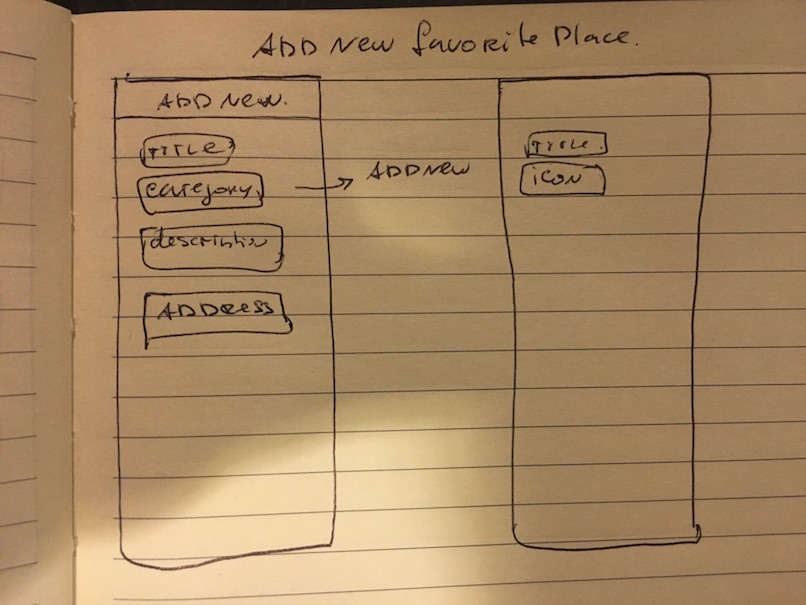 ADD New favorite Place.
ADD New.
TITLE
category.
description
ADDRess
ADD New
TITLE.
icon